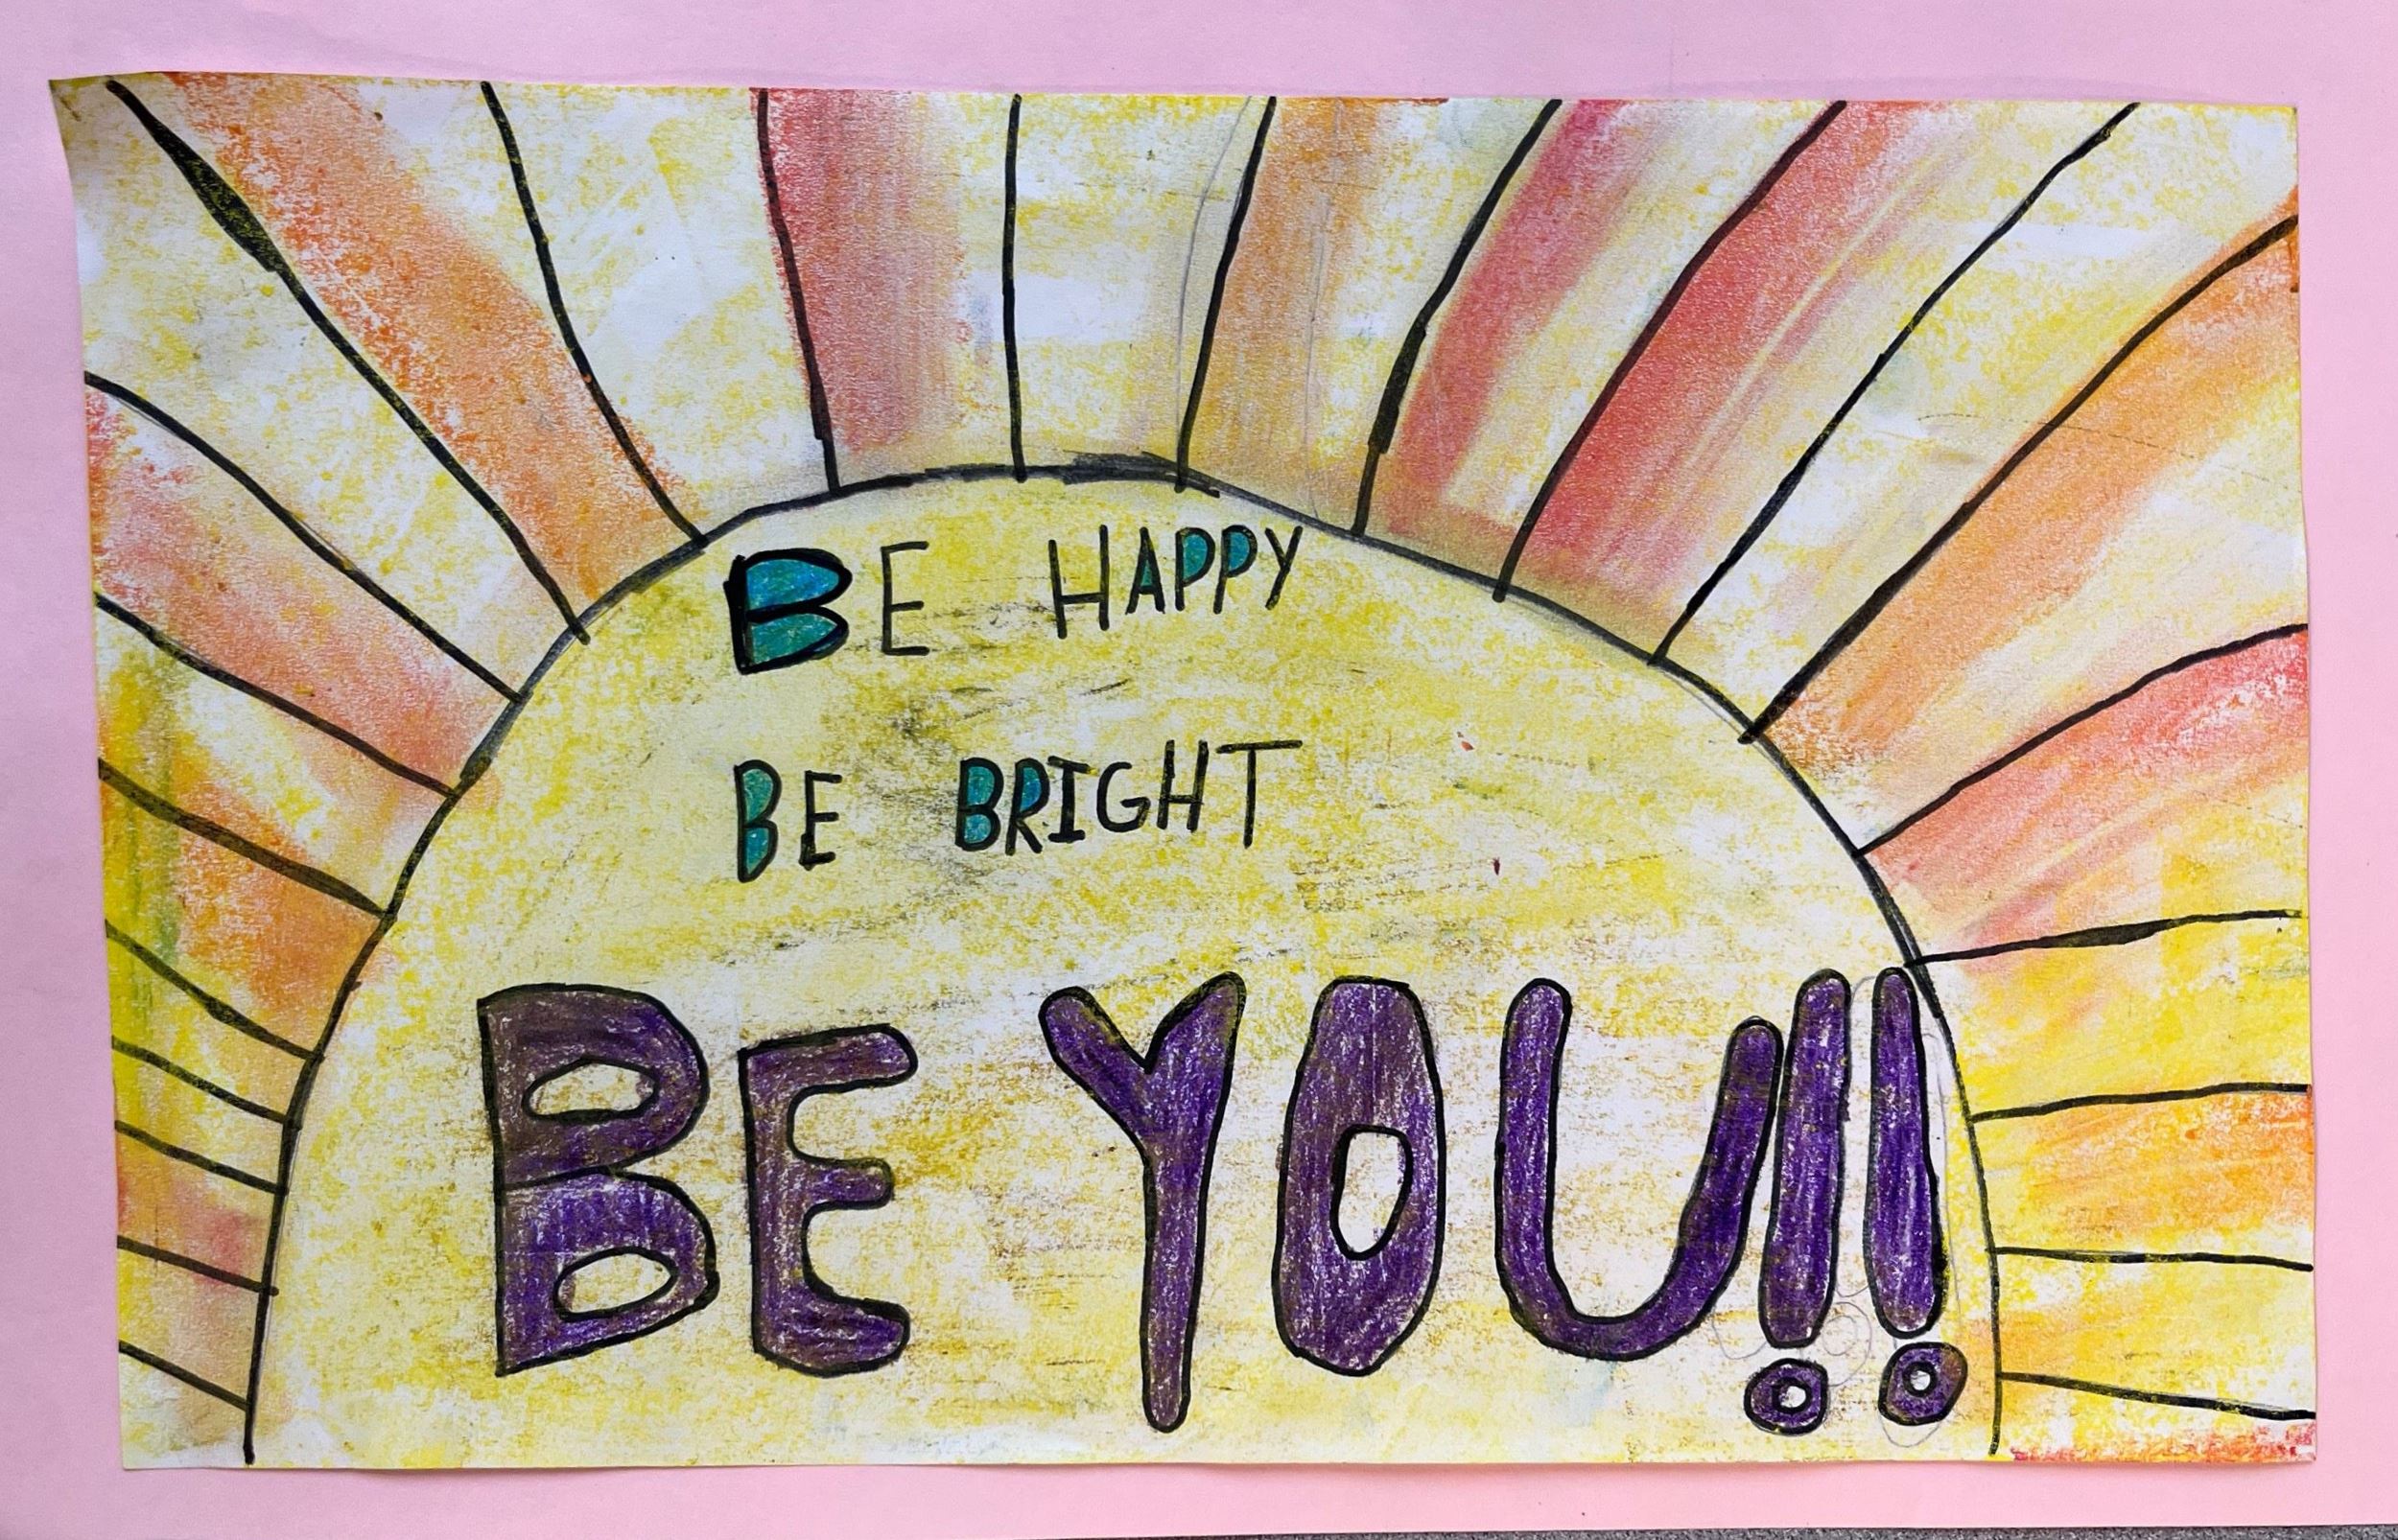 BE HAPPY
BE BRIGHT
BE YOU!!